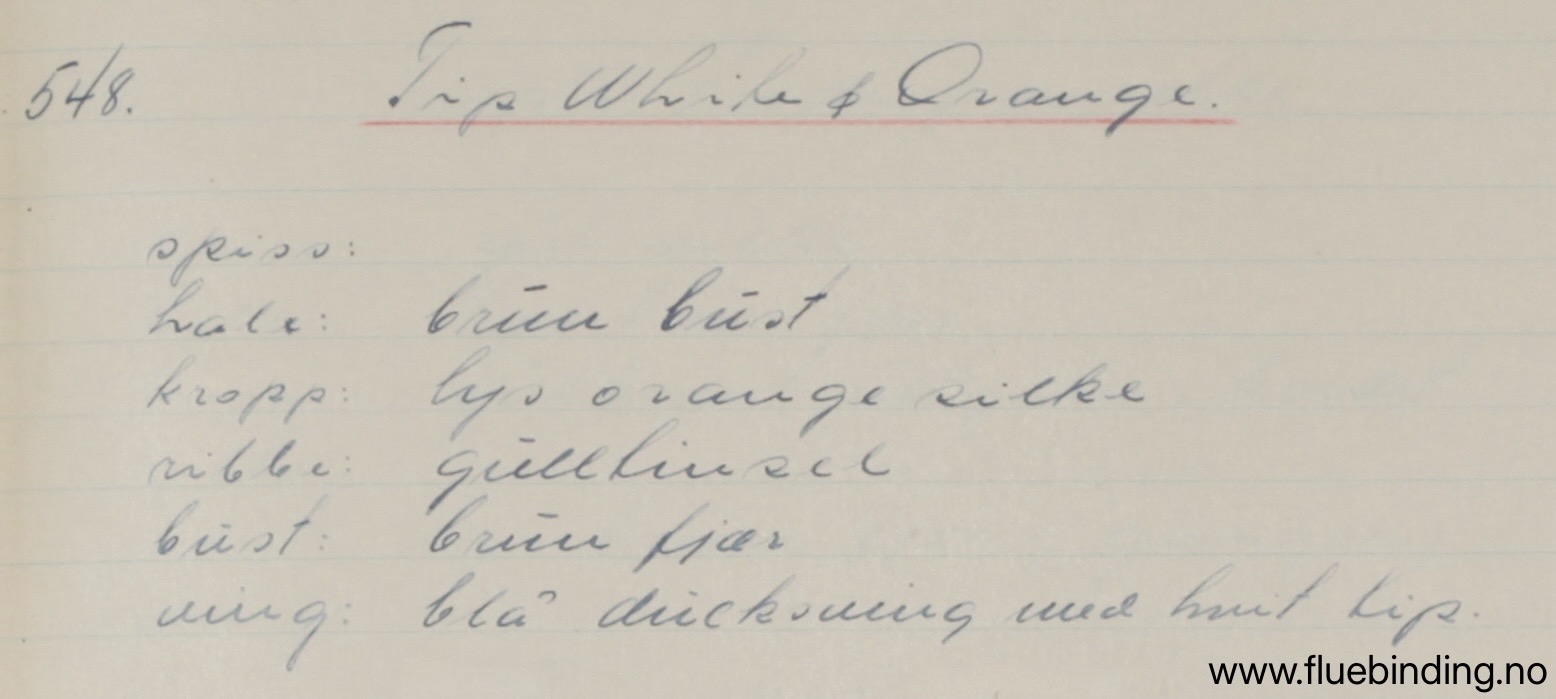 548. Tip White & Orange.
spiss:
hale: brun bust
kropp: lys orange silke
ribbe: gulltinsel
bust: brun fjær
ving: blå ducksving med hvit tip.
www.fluebinding.no